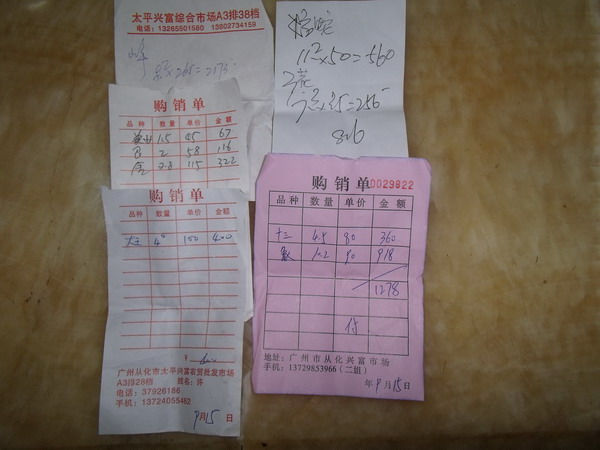 太平兴富综合市场A3排38档
电话：13265501580 13802734159
11²×50=560
826
购销单
品种 数量 单价 金额
1.5 45 67
2 58 116
2.8 115 322
购销单
品种 数量 单价 金额
4⁰ 100 400
广州从化市太平兴富农贸批发市场
A3排28档 姓名：许
电话：37926186
手机：13724055482
9月15日
购销单 0029822
品种 数量 单价 金额
十二 4.5 80 360
10.2 90 918
1278
付
地址：广州市从化兴富市场
手机：13729853966（二组）
年9月15日